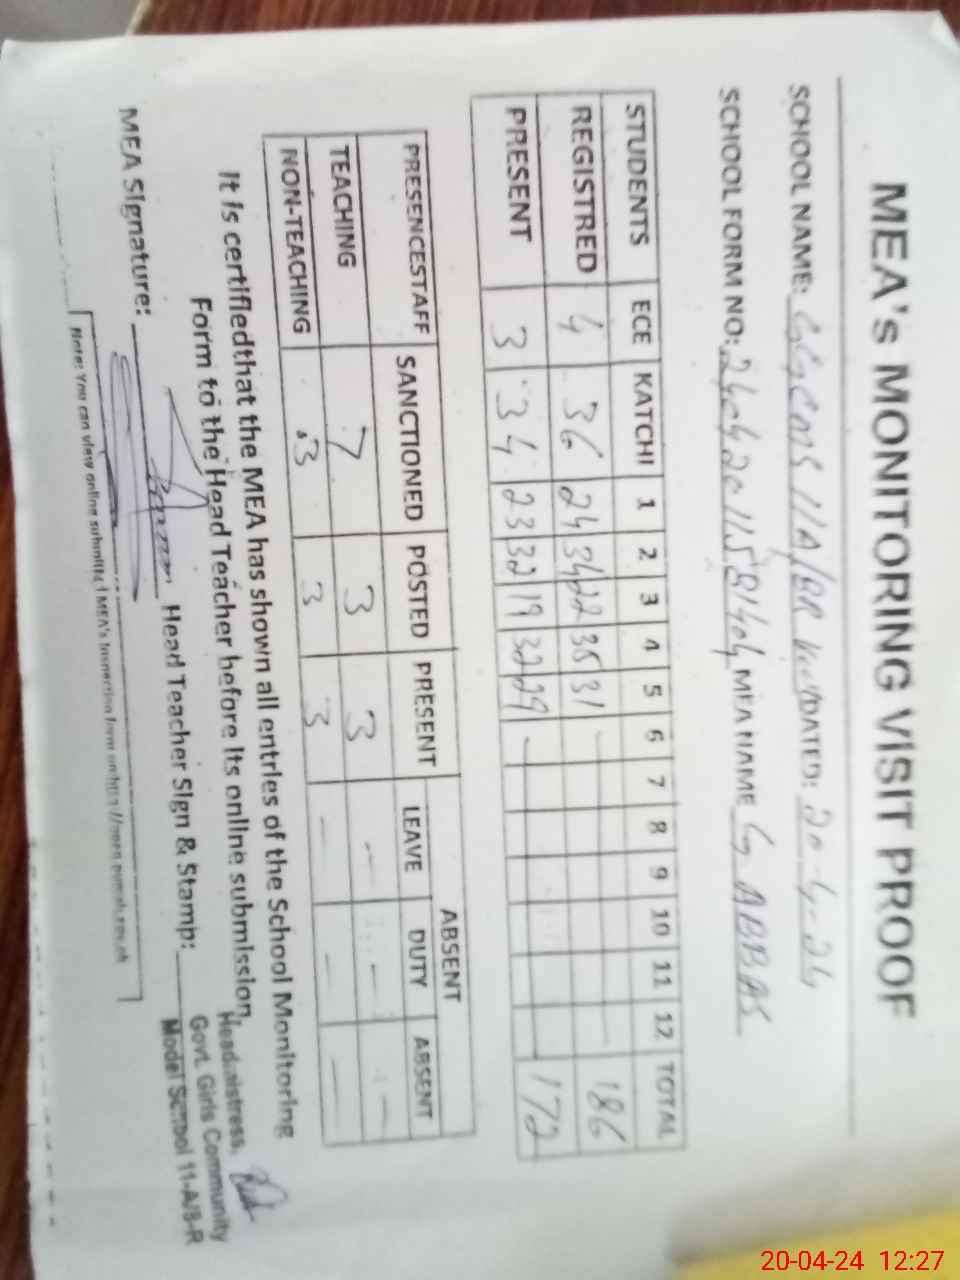 MEA's MONITORING VISIT PROOF
SCHOOL NAME: GGCMS 11A/8R DATED: 20-4-24
SCHOOL FORM NO: MEA NAME G ABBAS
STUDENTS ECE KATCHI 1 2 3 4 5 6 7 8 9 10 11 12 TOTAL
REGISTRED 4 36 24 34 22 35 31 — 186
PRESENT 3 34 23 32 19 32 29 — 172
ABSENT
PRESENCESTAFF SANCTIONED POSTED PRESENT LEAVE DUTY ABSENT
TEACHING 7 3 3 — — —
NON-TEACHING 3 3 3 — — —
It is certifiedthat the MEA has shown all entries of the School Monitoring
Form to the Head Teacher before its online submission.
MEA Signature: Head Teacher Sign & Stamp:
Headmistress,
Govt. Girls Community
Model School 11-A/8-R
Note: You can view online submitted MEA's Inspection form on
20-04-24 12:27